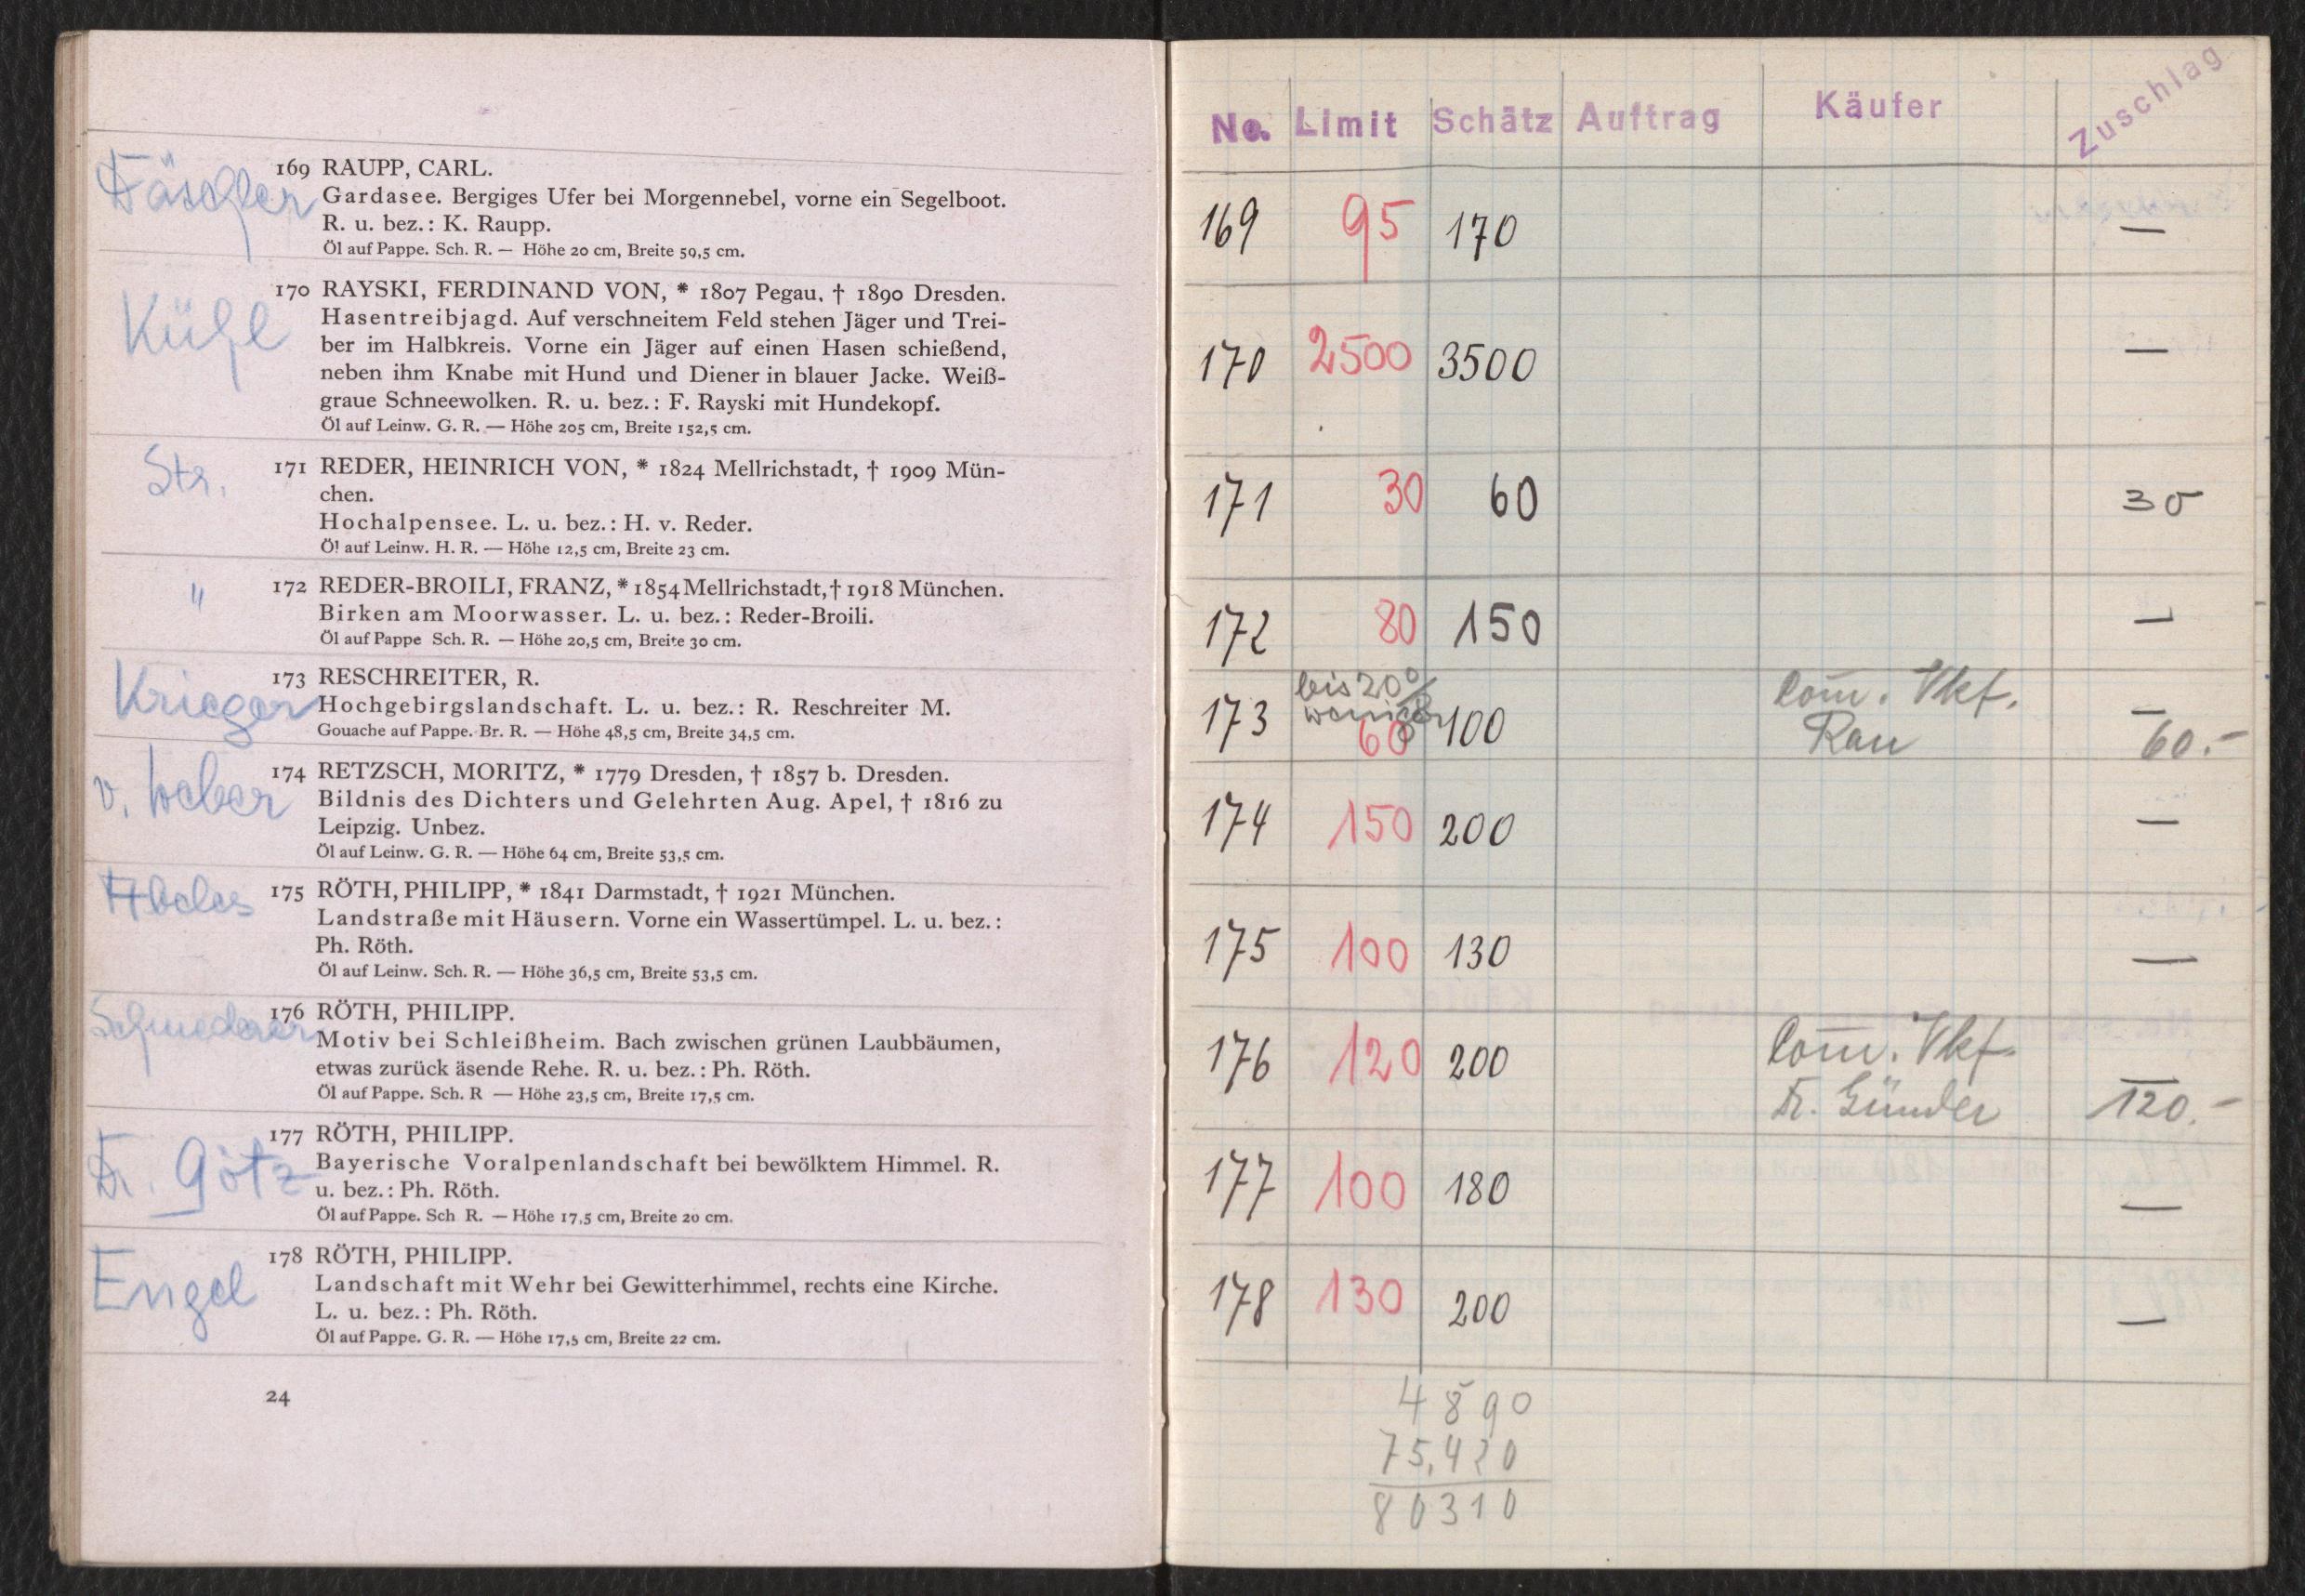 Käsgler
169 RAUPP, CARL.
Gardasee. Bergiges Ufer bei Morgennebel, vorne ein Segelboot.
R. u. bez.: K. Raupp.
Öl auf Pappe. Sch. R. — Höhe 20 cm, Breite 59,5 cm.
Kühl
170 RAYSKI, FERDINAND VON, * 1807 Pegau, † 1890 Dresden.
Hasentreibjagd. Auf verschneitem Feld stehen Jäger und Trei-
ber im Halbkreis. Vorne ein Jäger auf einen Hasen schießend,
neben ihm Knabe mit Hund und Diener in blauer Jacke. Weiß-
graue Schneewolken. R. u. bez.: F. Rayski mit Hundekopf.
Öl auf Leinw. G. R. — Höhe 205 cm, Breite 152,5 cm.
Str.
171 REDER, HEINRICH VON, * 1824 Mellrichstadt, † 1909 Mün-
chen.
Hochalpensee. L. u. bez.: H. v. Reder.
Öl auf Leinw. H. R. — Höhe 12,5 cm, Breite 23 cm.
"
172 REDER-BROILI, FRANZ, * 1854 Mellrichstadt, † 1918 München.
Birken am Moorwasser. L. u. bez.: Reder-Broili.
Öl auf Pappe Sch. R. — Höhe 20,5 cm, Breite 30 cm.
Krieger
173 RESCHREITER, R.
Hochgebirgslandschaft. L. u. bez.: R. Reschreiter M.
Gouache auf Pappe. Br. R. — Höhe 48,5 cm, Breite 34,5 cm.
v. Weber
174 RETZSCH, MORITZ, * 1779 Dresden, † 1857 b. Dresden.
Bildnis des Dichters und Gelehrten Aug. Apel, † 1816 zu
Leipzig. Unbez.
Öl auf Leinw. G. R. — Höhe 64 cm, Breite 53,5 cm.
Abeles
175 RÖTH, PHILIPP, * 1841 Darmstadt, † 1921 München.
Landstraße mit Häusern. Vorne ein Wassertümpel. L. u. bez.:
Ph. Röth.
Öl auf Leinw. Sch. R. — Höhe 36,5 cm, Breite 53,5 cm.
Schmederer
176 RÖTH, PHILIPP.
Motiv bei Schleißheim. Bach zwischen grünen Laubbäumen,
etwas zurück äsende Rehe. R. u. bez.: Ph. Röth.
Öl auf Pappe. Sch. R — Höhe 23,5 cm, Breite 17,5 cm.
Dr. Götz
177 RÖTH, PHILIPP.
Bayerische Voralpenlandschaft bei bewölktem Himmel. R.
u. bez.: Ph. Röth.
Öl auf Pappe. Sch R. — Höhe 17,5 cm, Breite 20 cm.
Engel
178 RÖTH, PHILIPP.
Landschaft mit Wehr bei Gewitterhimmel, rechts eine Kirche.
L. u. bez.: Ph. Röth.
Öl auf Pappe. G. R. — Höhe 17,5 cm, Breite 22 cm.
24
No. Limit Schätz Auftrag Käufer Zuschlag
169 95 170 —
170 2500 3500 —
171 30 60 30
172 80 150 —
bis 20%
weniger
173 60 100 Com. Vkf. —
Rau 60.-
174 150 200 —
175 100 130 —
176 120 200 Com. Vkf. —
Dr. Günder 120.-
177 100 180 —
178 130 200 —
4890
75,420
80310